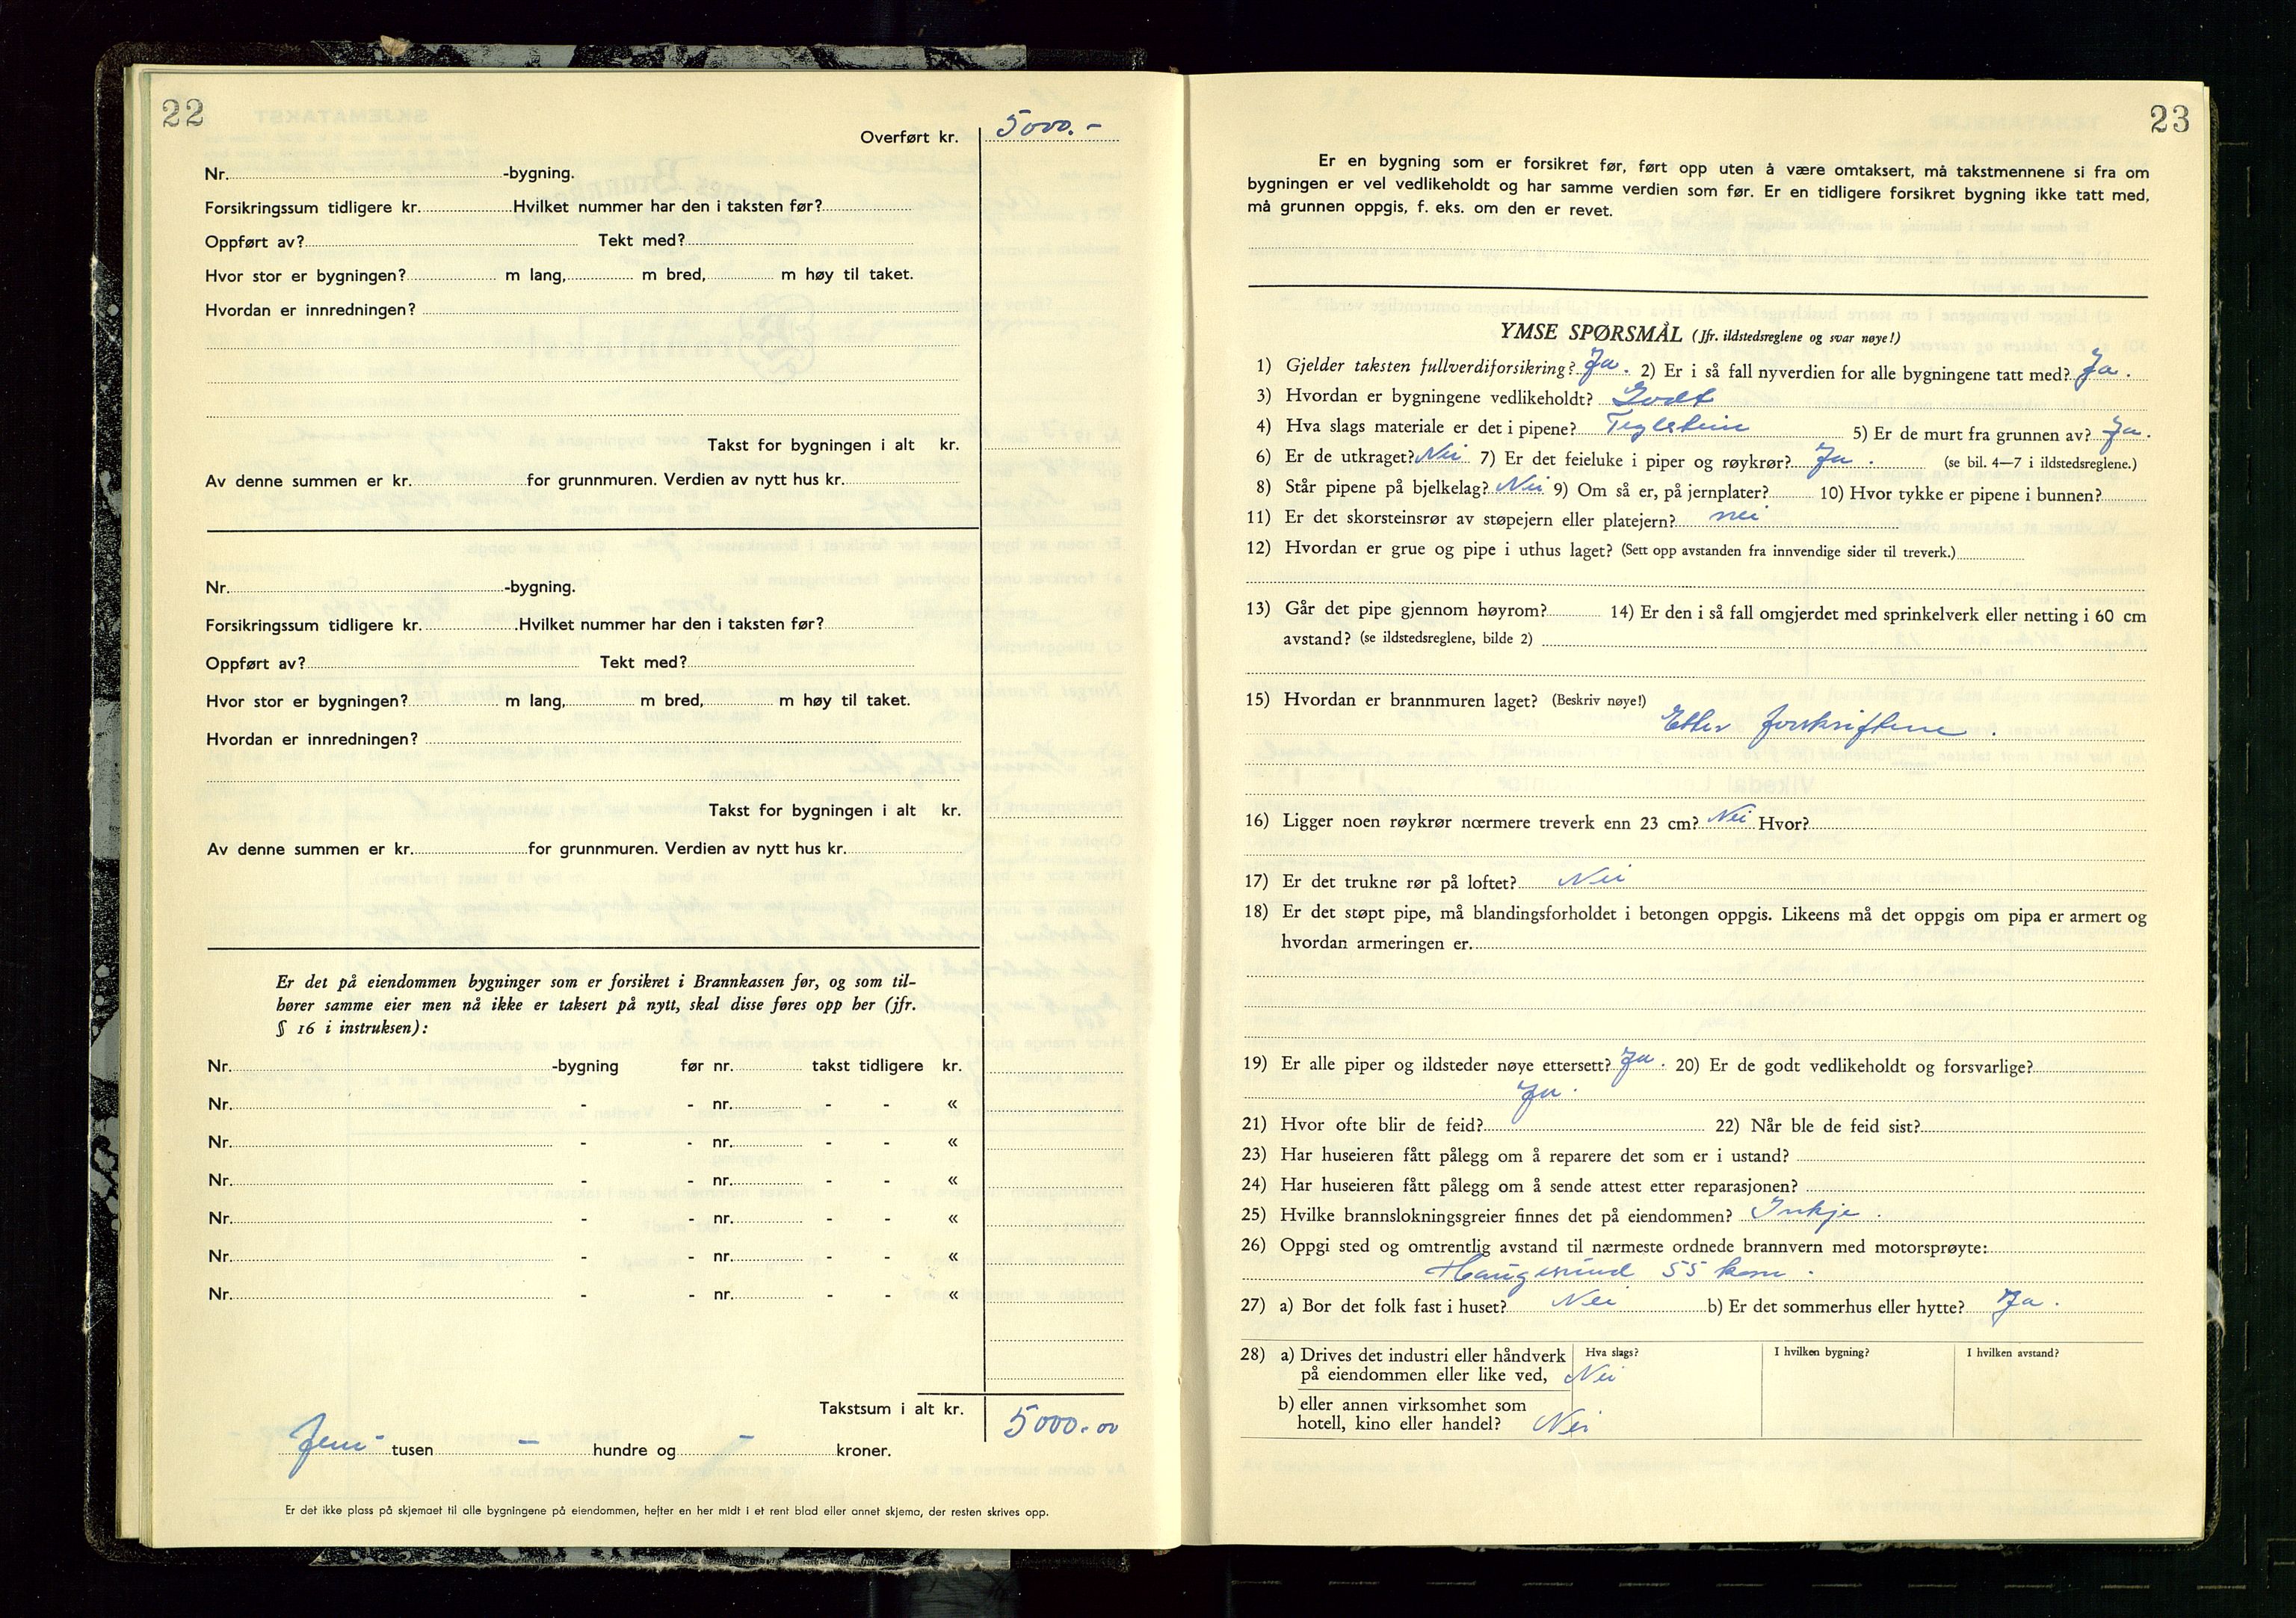 22
Overført kr. 5000.-
Nr. -bygning.
Forsikringssum tidligere kr. Hvilket nummer har den i taksten før?
Oppført av? Tekt med?
Hvor stor er bygningen? m lang, m bred, m høy til taket.
Hvordan er innredningen?
Takst for bygningen i alt kr.
Av denne summen er kr. for grunnmuren. Verdien av nytt hus kr.
Nr. -bygning.
Forsikringssum tidligere kr. Hvilket nummer har den i taksten før?
Oppført av? Tekt med?
Hvor stor er bygningen? m lang, m bred, m høy til taket.
Hvordan er innredningen?
Takst for bygningen i alt kr.
Av denne summen er kr. for grunnmuren. Verdien av nytt hus kr.
Er det på eiendommen bygninger som er forsikret i Brannkassen før, og som til-
hører samme eier men nå ikke er taksert på nytt, skal disse føres opp her (jfr.
§ 16 i instruksen):
Nr. -bygning før nr. takst tidligere kr.
Nr. - - nr. - - «
Nr. - - nr. - - «
Nr. - - nr. - - «
Nr. - - nr. - - «
Nr. - - nr. - - «
Nr. - - nr. - - «
Takstsum i alt kr. 5000.00
Fem- tusen - hundre og - kroner.
Er det ikke plass på skjemaet til alle bygningene på eiendommen, hefter en her midt i et rent blad eller annet skjema, der resten skrives opp.
23
Er en bygning som er forsikret før, ført opp uten å være omtaksert, må takstmennene si fra om
bygningen er vel vedlikeholdt og har samme verdien som før. Er en tidligere forsikret bygning ikke tatt med,
må grunnen oppgis, f. eks. om den er revet.
YMSE SPØRSMÅL (Jfr. ildstedsreglene og svar nøye!)
1) Gjelder taksten fullverdiforsikring? Ja. 2) Er i så fall nyverdien for alle bygningene tatt med? Ja.
3) Hvordan er bygningene vedlikeholdt? Godt
4) Hva slags materiale er det i pipene? Teglstein 5) Er de murt fra grunnen av? Ja.
6) Er de utkraget? Nei 7) Er det feieluke i piper og røykrør? Ja. (se bil. 4—7 i ildstedsreglene.)
8) Står pipene på bjelkelag? Nei 9) Om så er, på jernplater? 10) Hvor tykke er pipene i bunnen?
11) Er det skorsteinsrør av støpejern eller platejern? nei
12) Hvordan er grue og pipe i uthus laget? (Sett opp avstanden fra innvendige sider til treverk.)
13) Går det pipe gjennom høyrom? 14) Er den i så fall omgjerdet med sprinkelverk eller netting i 60 cm
avstand? (se ildstedsreglene, bilde 2)
15) Hvordan er brannmuren laget? (Beskriv nøye!)
Etter forskriftene.
16) Ligger noen røykrør nærmere treverk enn 23 cm? Nei Hvor?
17) Er det trukne rør på loftet? Nei
18) Er det støpt pipe, må blandingsforholdet i betongen oppgis. Likeens må det oppgis om pipa er armert og
hvordan armeringen er.
19) Er alle piper og ildsteder nøye ettersett? Ja. 20) Er de godt vedlikeholdt og forsvarlige?
Ja.
21) Hvor ofte blir de feid? 22) Når ble de feid sist?
23) Har huseieren fått pålegg om å reparere det som er i ustand?
24) Har huseieren fått pålegg om å sende attest etter reparasjonen?
25) Hvilke brannslokningsgreier finnes det på eiendommen? Inkje.
26) Oppgi sted og omtrentlig avstand til nærmeste ordnede brannvern med motorsprøyte:
Haugesund 55 km.
27) a) Bor det folk fast i huset? Nei b) Er det sommerhus eller hytte? Ja.
28) a) Drives det industri eller håndverk Hva slags? I hvilken bygning? I hvilken avstand?
på eiendommen eller like ved, Nei
b) eller annen virksomhet som
hotell, kino eller handel? Nei